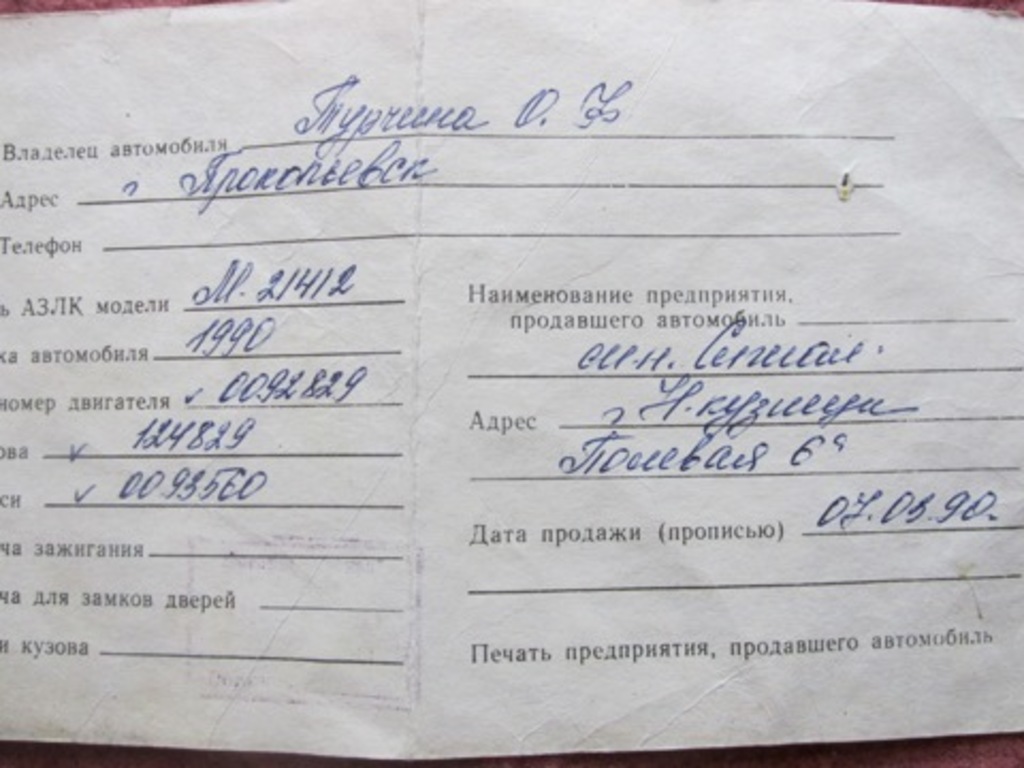 Владелец автомобиля Турчина О.
Адрес г Прокопьевск
Телефон
ь АЗЛК модели М-21412
ка автомобиля 1990
номер двигателя 0092829
ова 124829
си 0093560
ча зажигания
ча для замков дверей
и кузова
Наименование предприятия,
продавшего автомобиль
Адрес г Н.кузнецк
Полевая 6а
Дата продажи (прописью) 07.03.90.
Печать предприятия, продавшего автомобиль